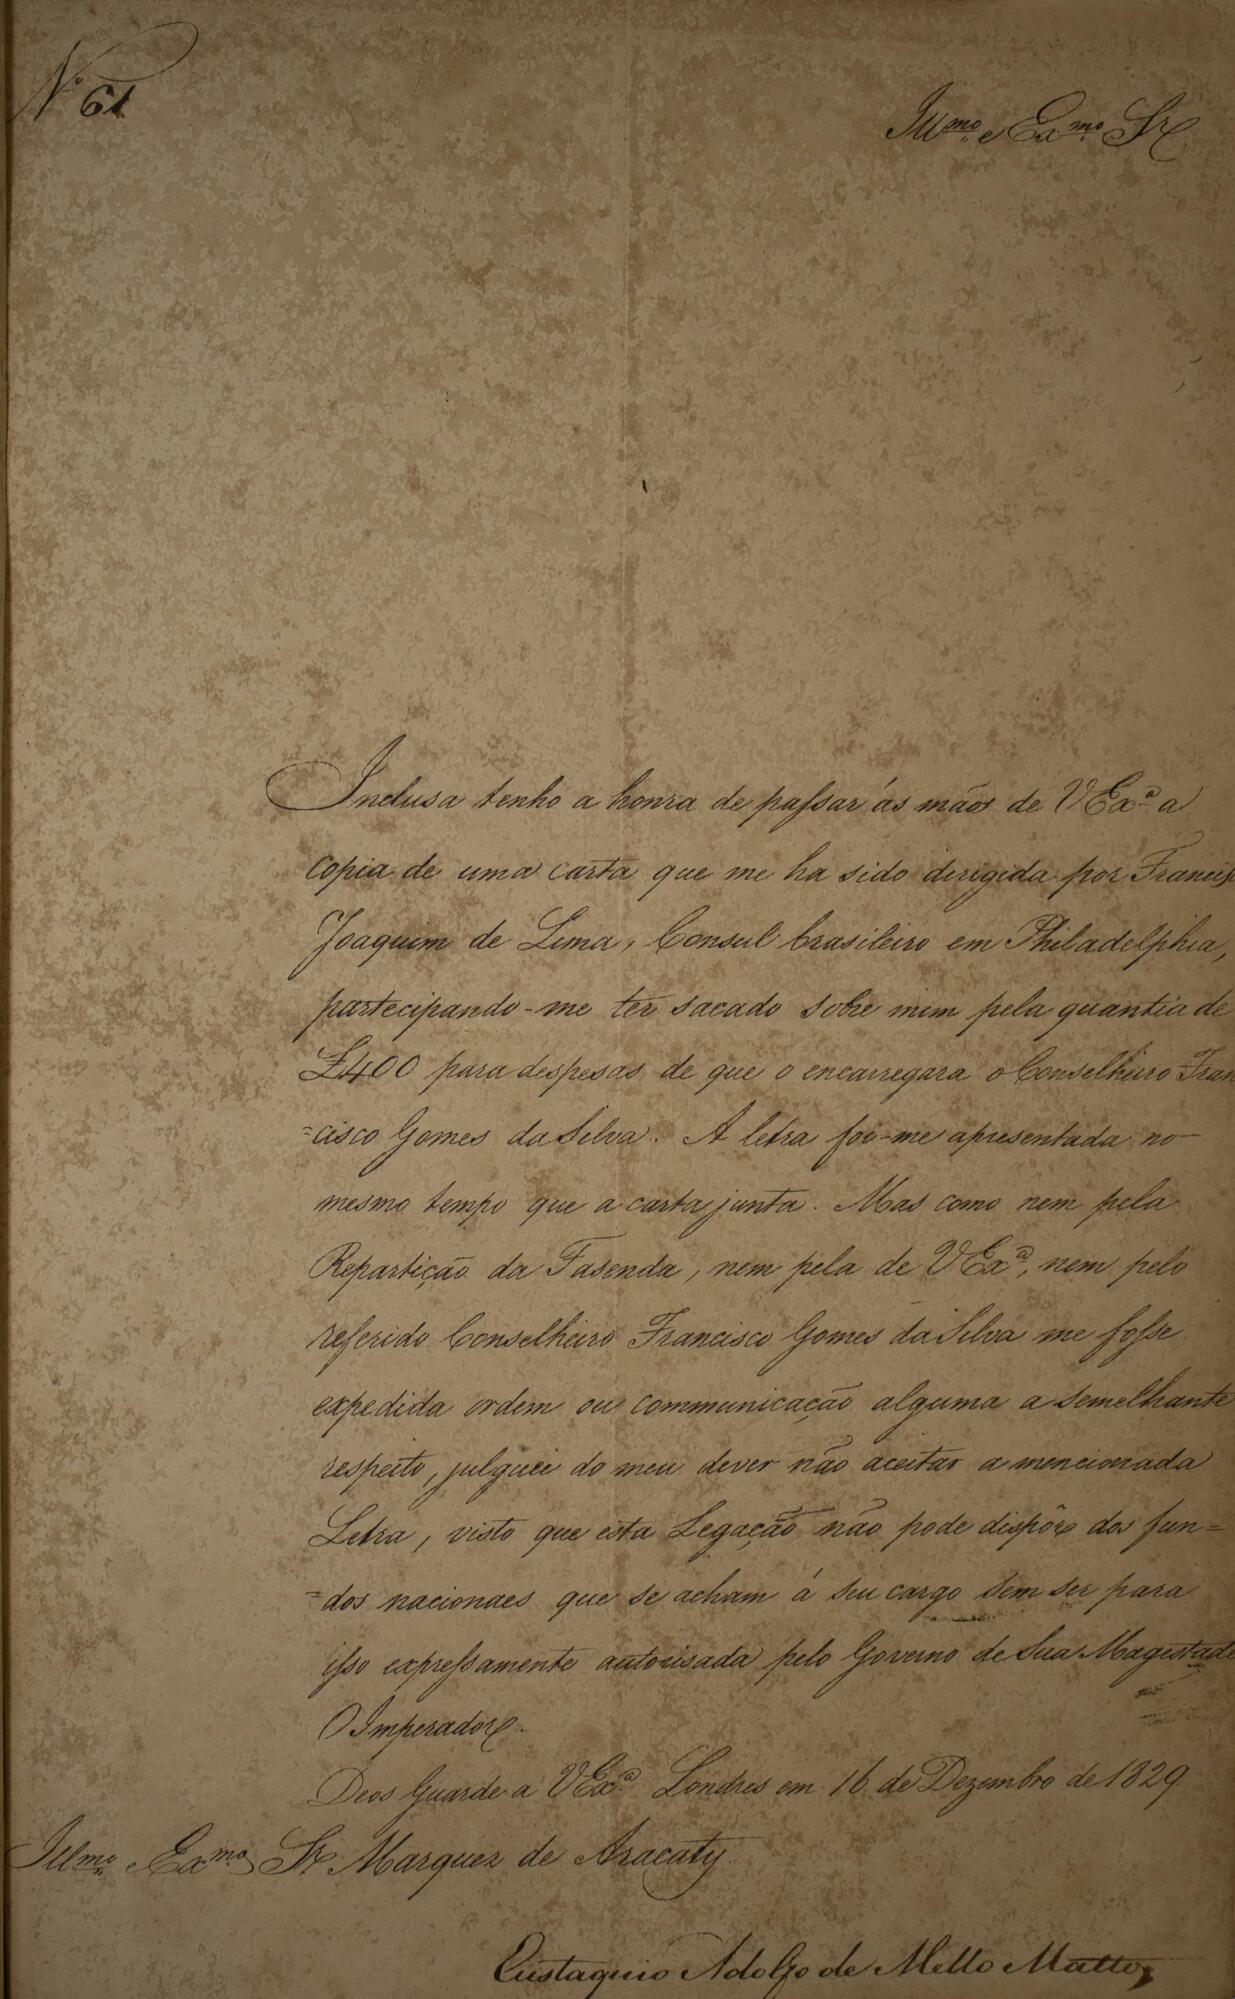 Nº 61
Illmo e Exmo Sr
Inclusa tenho a honra de passar ás mãos de VExª a
copia de uma carta que me ha sido dirigida por Francis
Joaquim de Lima, Consul brasileiro em Philadelphia,
partecipando-me ter sacado sobre mim pela quantia de
£400 para despesas de que o encarregara o Conselheiro Fran
=cisco Gomes da Silva. A letra foi-me apresentada no
mesmo tempo que a carta junta. Mas como nem pela
Repartição da Fasenda, nem pela de VExª, nem pelo
referido Conselheiro Francisco Gomes da Silva me fosse
expedida ordem ou communicação alguma a semelhante
respeito, julguei do meu dever não aceitar a mencionada
Letra, visto que esta Legação não pode dispôr dos fun=
=dos nacionaes que se acham á seu cargo sem ser para
isso expressamente autorisada pelo Governo de Sua Magestade
O Imperador.
Deos Guarde a VExª Londres em 16 de Dezembro de 1829
Illmo Exmo Sr Marquez de Aracaty
Eustaquio Adolfo de Mello Mattos